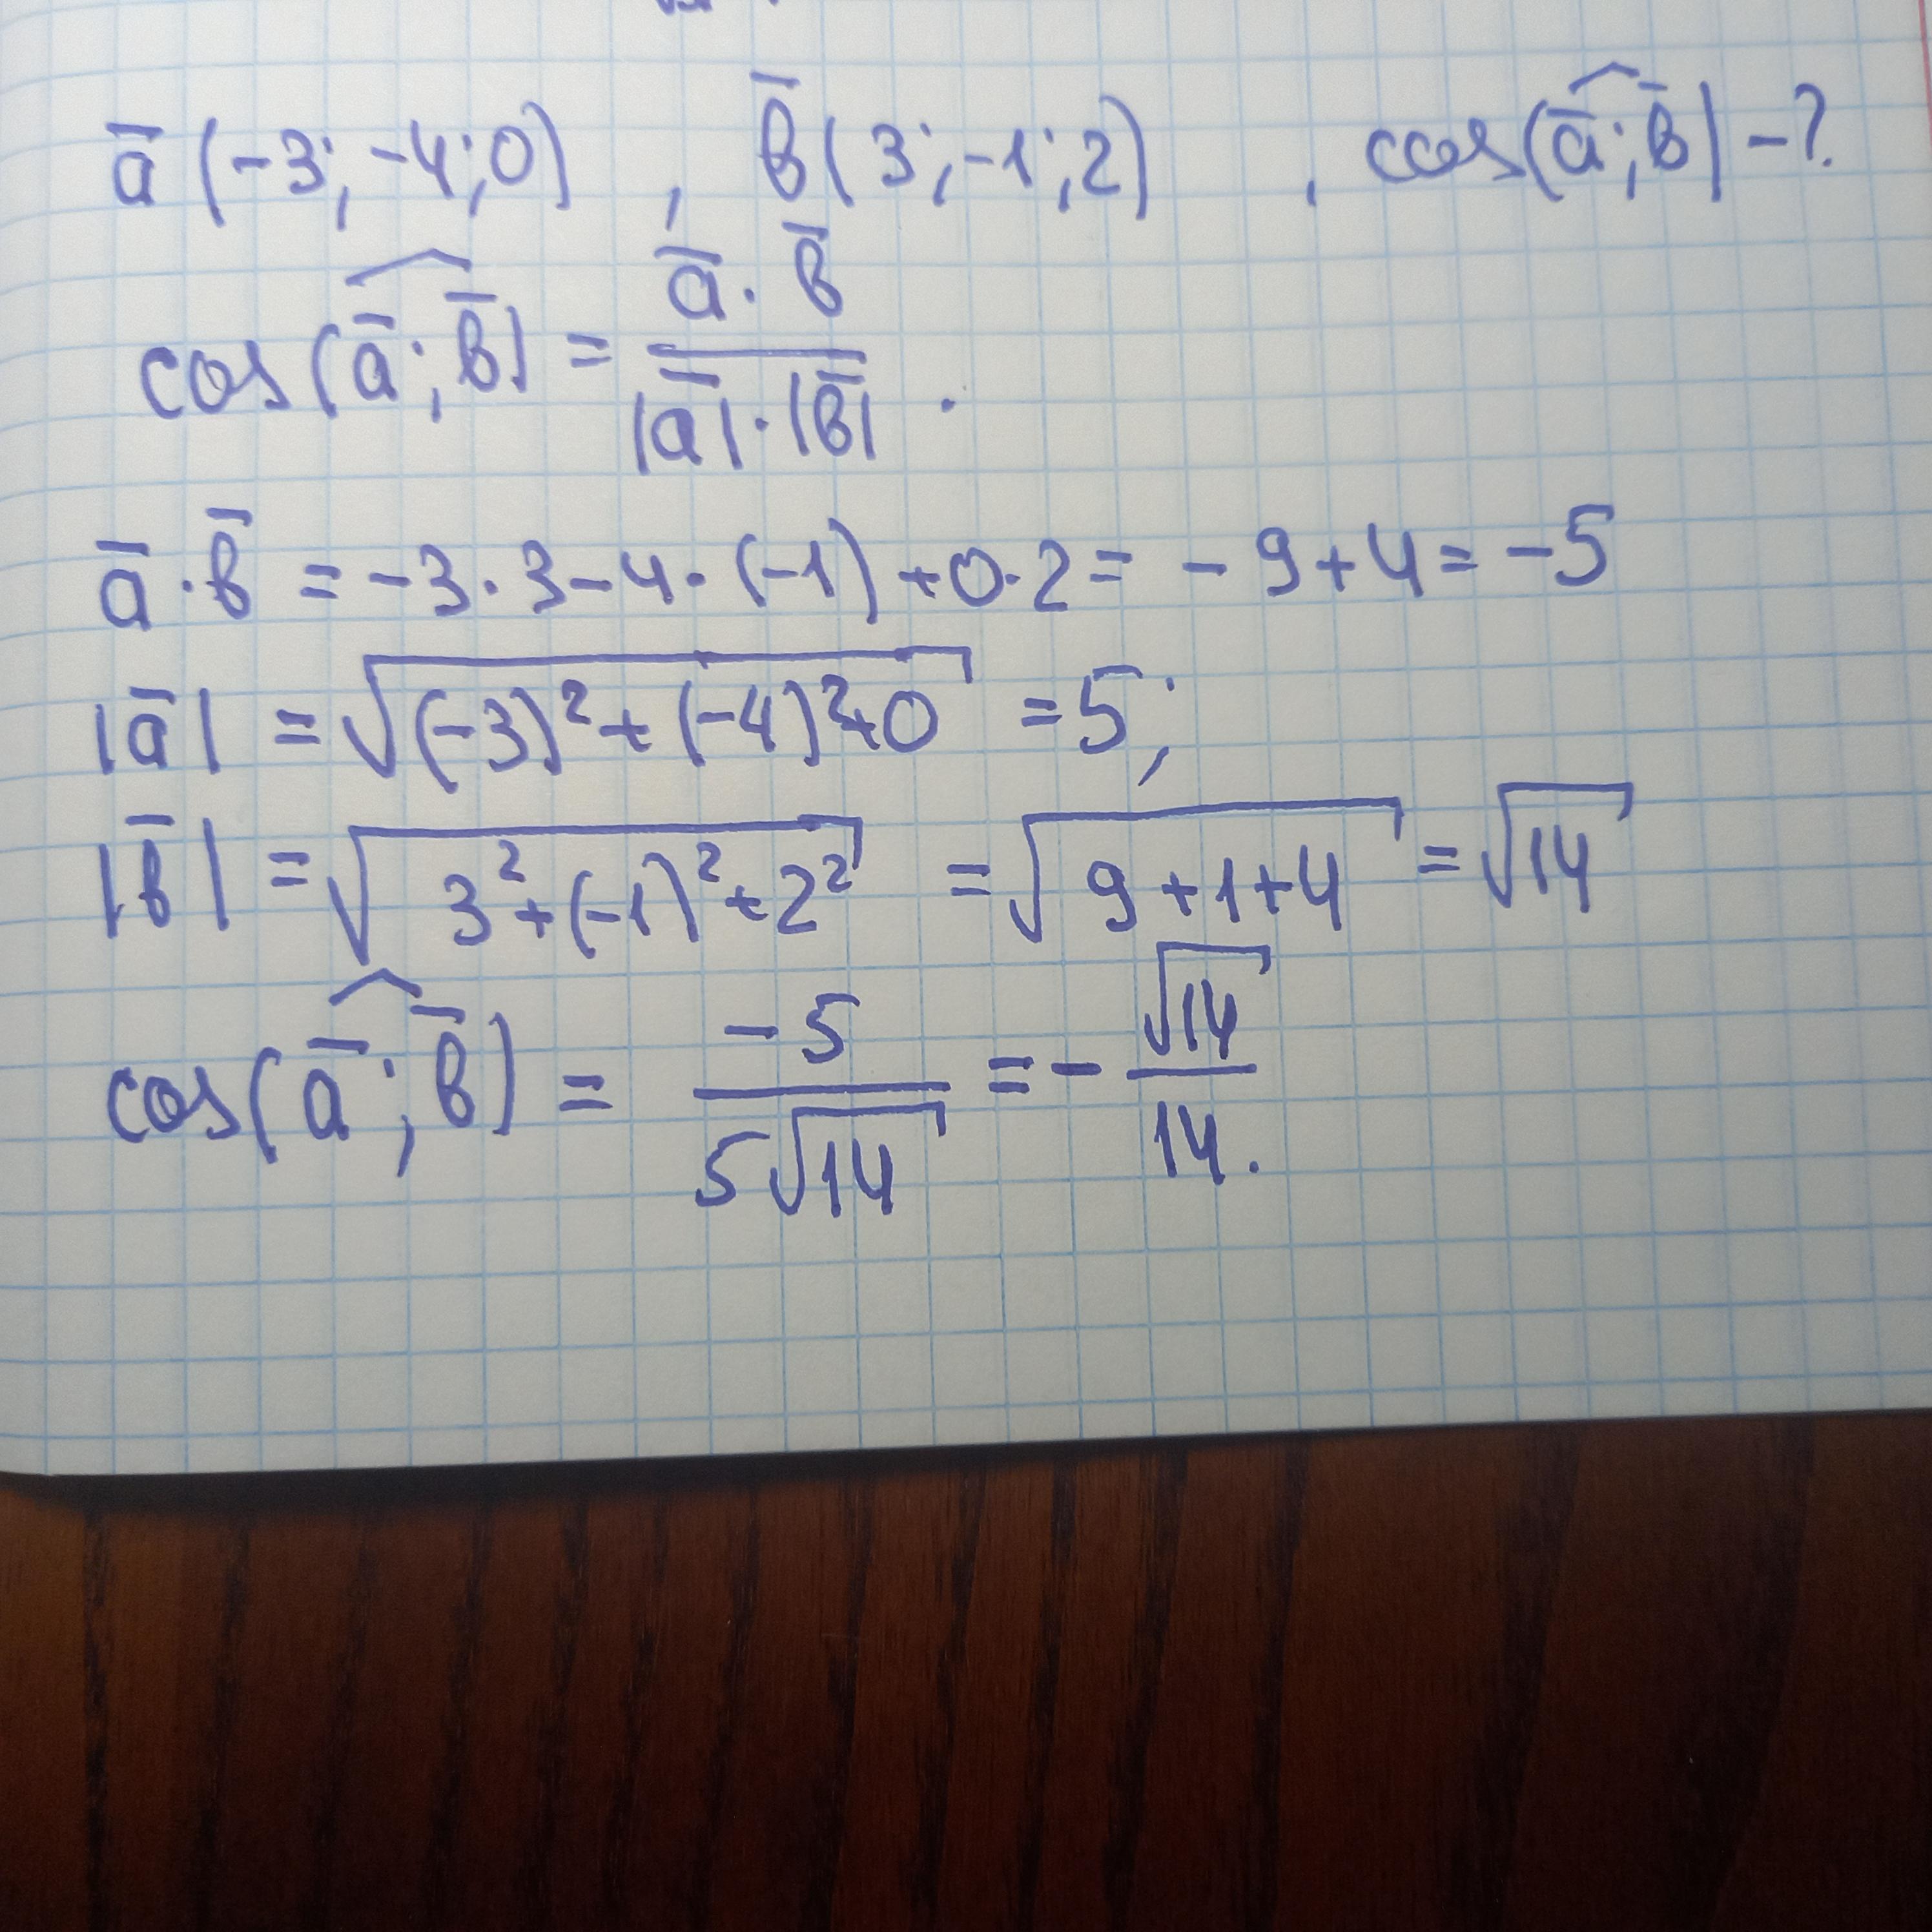 a̅ (-3; -4; 0) , b̅ (3; -1; 2) , cos(a̅;^b̅) - ?
cos(a̅;^b̅) = (a̅ · b̅)/(|a̅| · |b̅|) .
a̅ · b̅ = -3 · 3 - 4 · (-1) + 0 · 2 = -9 + 4 = -5
|a̅| = √((-3)² + (-4)² + 0) = 5;
|b̅| = √(3² + (-1)² + 2²) = √(9 + 1 + 4) = √14
cos(a̅;^b̅) = -5/(5√14) = - √14/14.